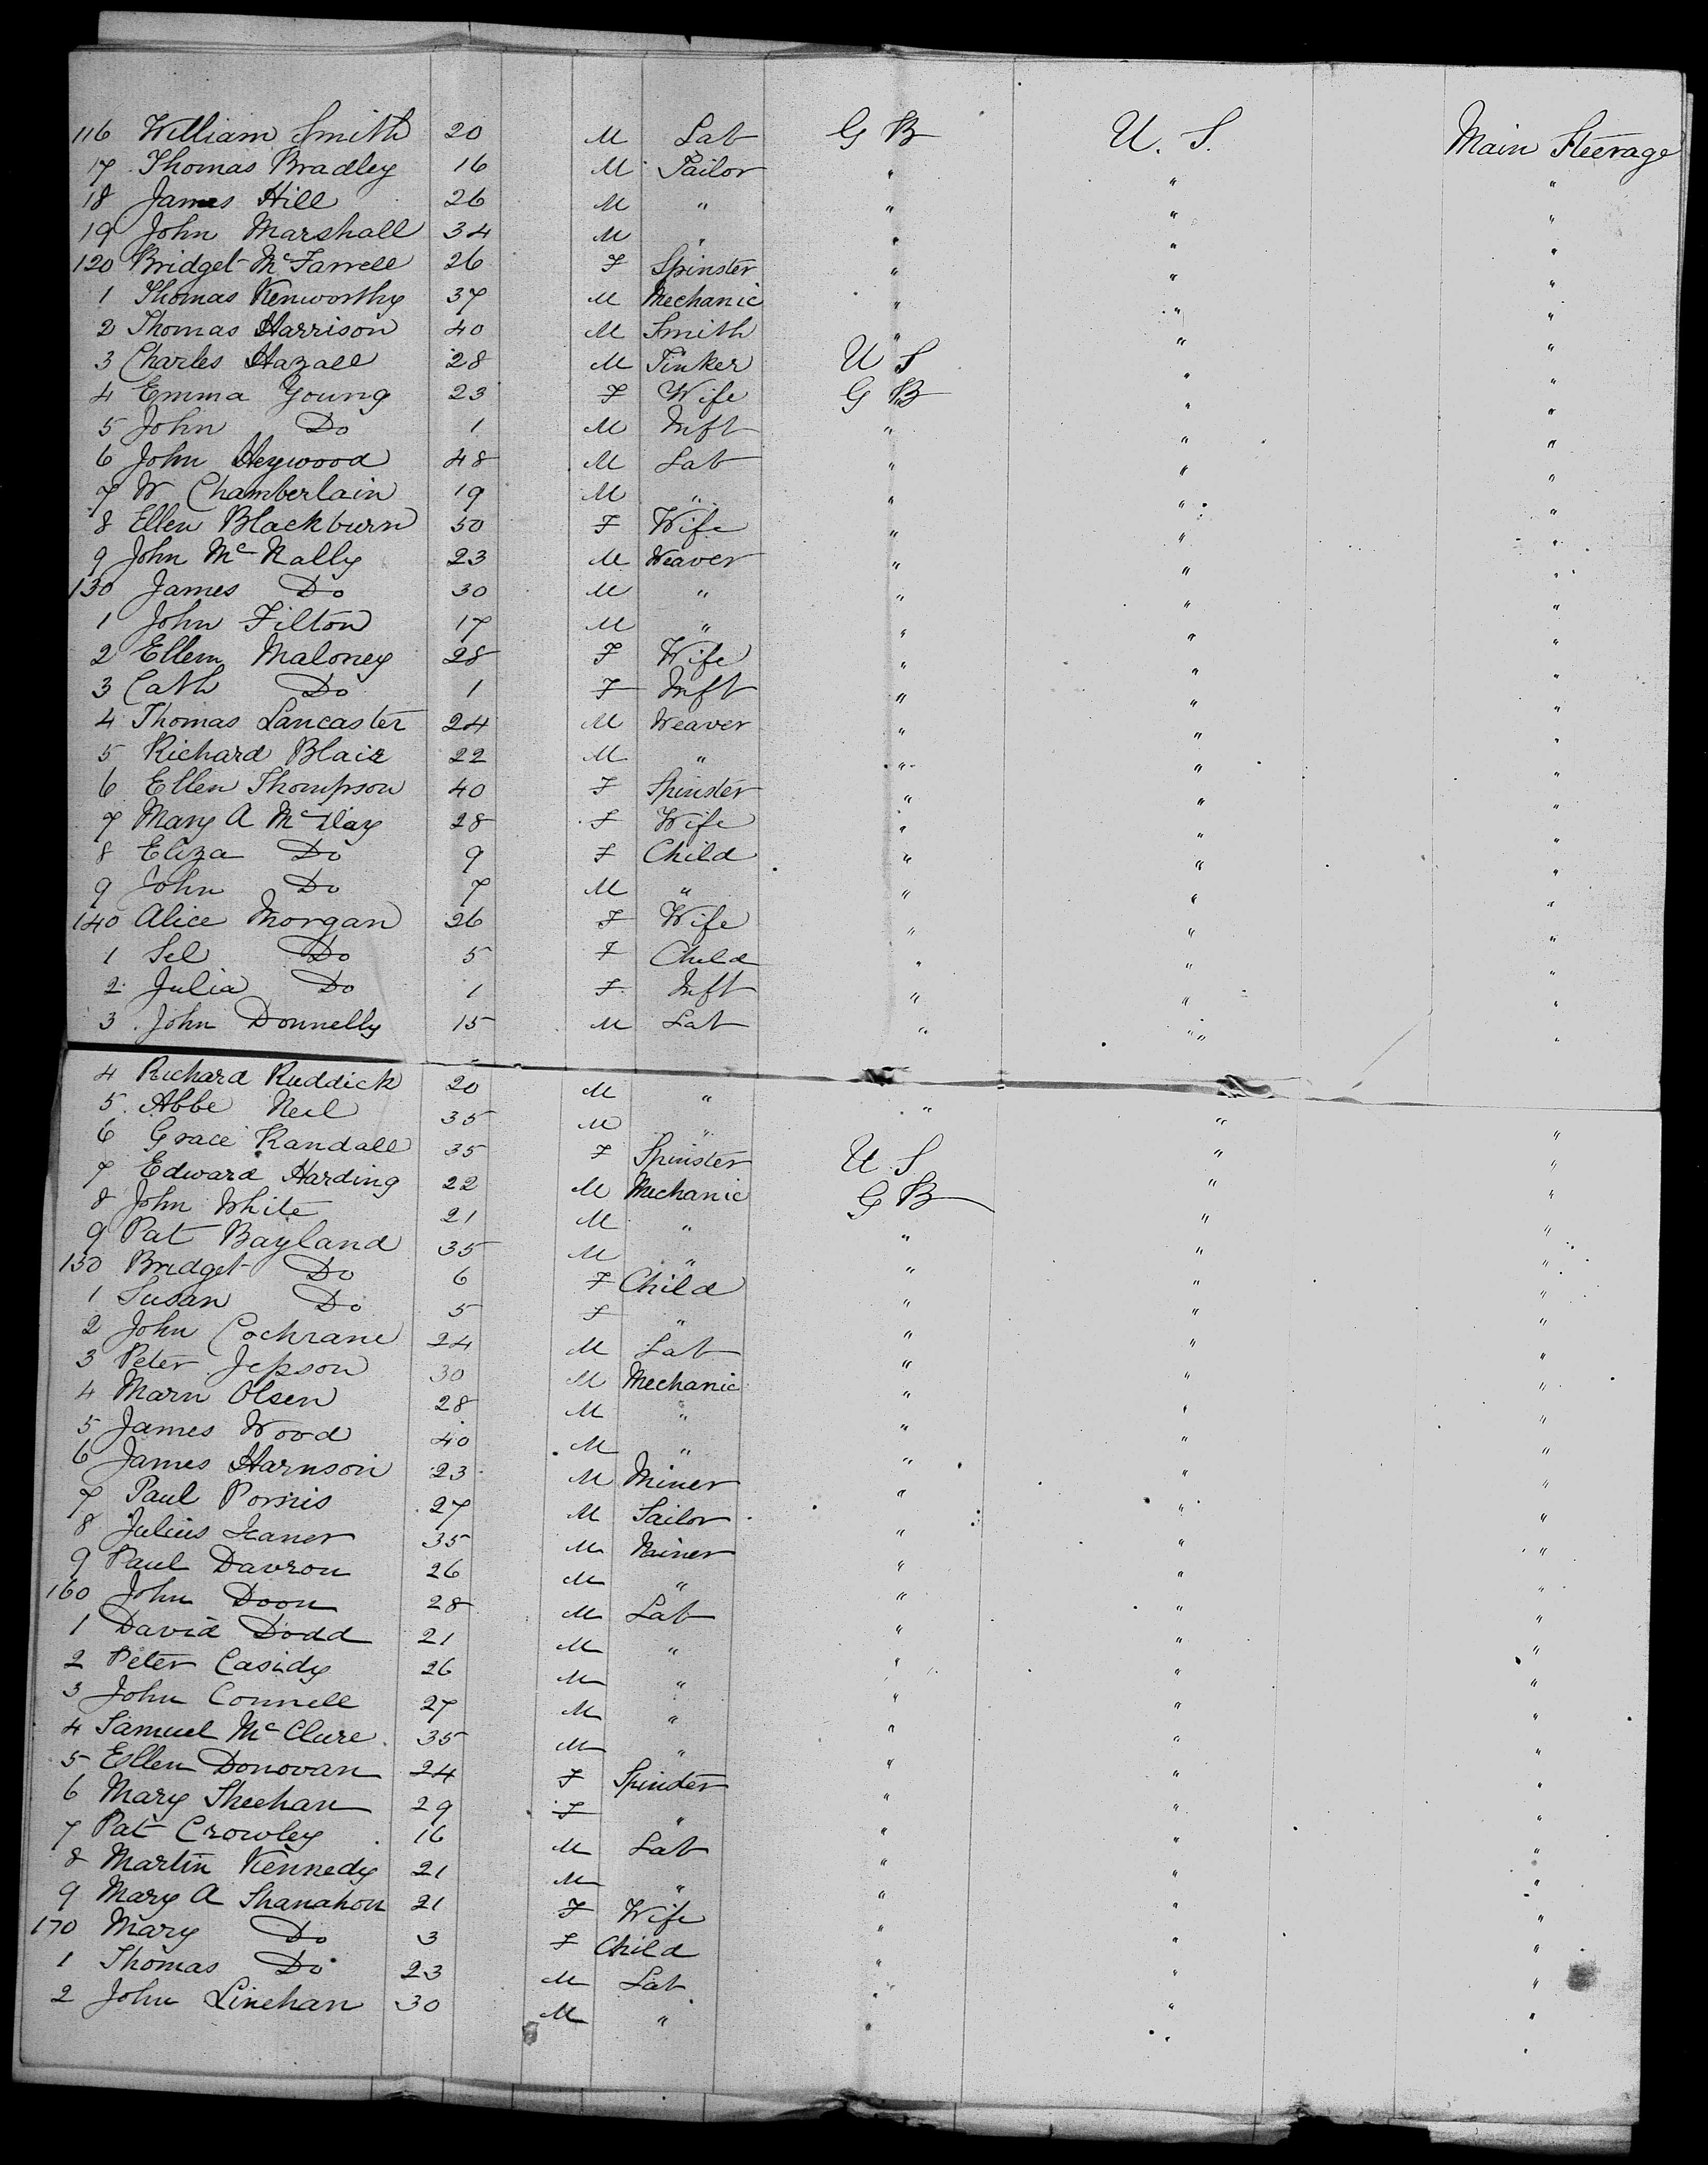 116 William Smith 20 M Lab G B U. S. Main Steerage
17 Thomas Bradley 16 M Tailor " " "
18 James Hill 26 M " " " "
19 John Marshall 34 M " " " "
120 Bridget McFarrell 26 F Spinster " " "
1 Thomas Kenworthy 37 M Mechanic " " "
2 Thomas Harrison 40 M Smith " " "
3 Charles Hazall 28 M Tinker U S " "
4 Emma Young 23 F Wife G B " "
5 John Do 1 M Inft " " "
6 John Heywood 48 M Lab " " "
7 W Chamberlain 19 M " " " "
8 Ellen Blackburn 50 F Wife " " "
9 John McNally 23 M Weaver " " "
130 James Do 30 M " " " "
1 John Filton 17 M " " " "
2 Ellen Maloney 28 F Wife " " "
3 Cath Do 1 F Inft " " "
4 Thomas Lancaster 24 M Weaver " " "
5 Richard Blair 22 M " " " "
6 Ellen Thompson 40 F Spinster " " "
7 Mary A McVay 28 F Wife " " "
8 Eliza Do 9 F Child " " "
9 John Do 7 M " " " "
140 Alice Morgan 26 F Wife " " "
1 Sel Do 5 F Child " " "
2 Julia Do 1 F Inft " " "
3 John Donnelly 15 M Lab " " "
4 Richard Ruddick 20 M " " " "
5 Abbe Neil 35 M " " " "
6 Grace Randall 35 F Spinster U. S " "
7 Edward Harding 22 M Mechanic G B " "
8 John White 21 M " " " "
9 Pat Bayland 35 M " " " "
150 Bridget Do 6 F Child " " "
1 Susan Do 5 F " " " "
2 John Cochrane 24 M Lab " " "
3 Peter Jepson 30 M Mechanic " " "
4 Marn Olsen 28 M " " " "
5 James Wood 40 M " " " "
6 James Harnson 23 M Miner " " "
7 Paul 27 M Sailor " " "
8 Julius 35 M Miner " " "
9 Paul Davron 26 M " " " "
160 John Doon 28 M Lab " " "
1 David Dodd 21 M " " " "
2 Peter Casidy 26 M " " " "
3 John Connell 27 M " " " "
4 Samuel McClure 35 M " " " "
5 Ellen Donovan 24 F Spinster " " "
6 Mary Sheehan 29 F " " " "
7 Pat Crowley 16 M Lab " " "
8 Martin Kennedy 21 M " " " "
9 Mary A Shanahon 21 F Wife " " "
170 Mary Do 3 F Child " " "
1 Thomas Do 23 M Lab " " "
2 John Linehan 30 M " " " "